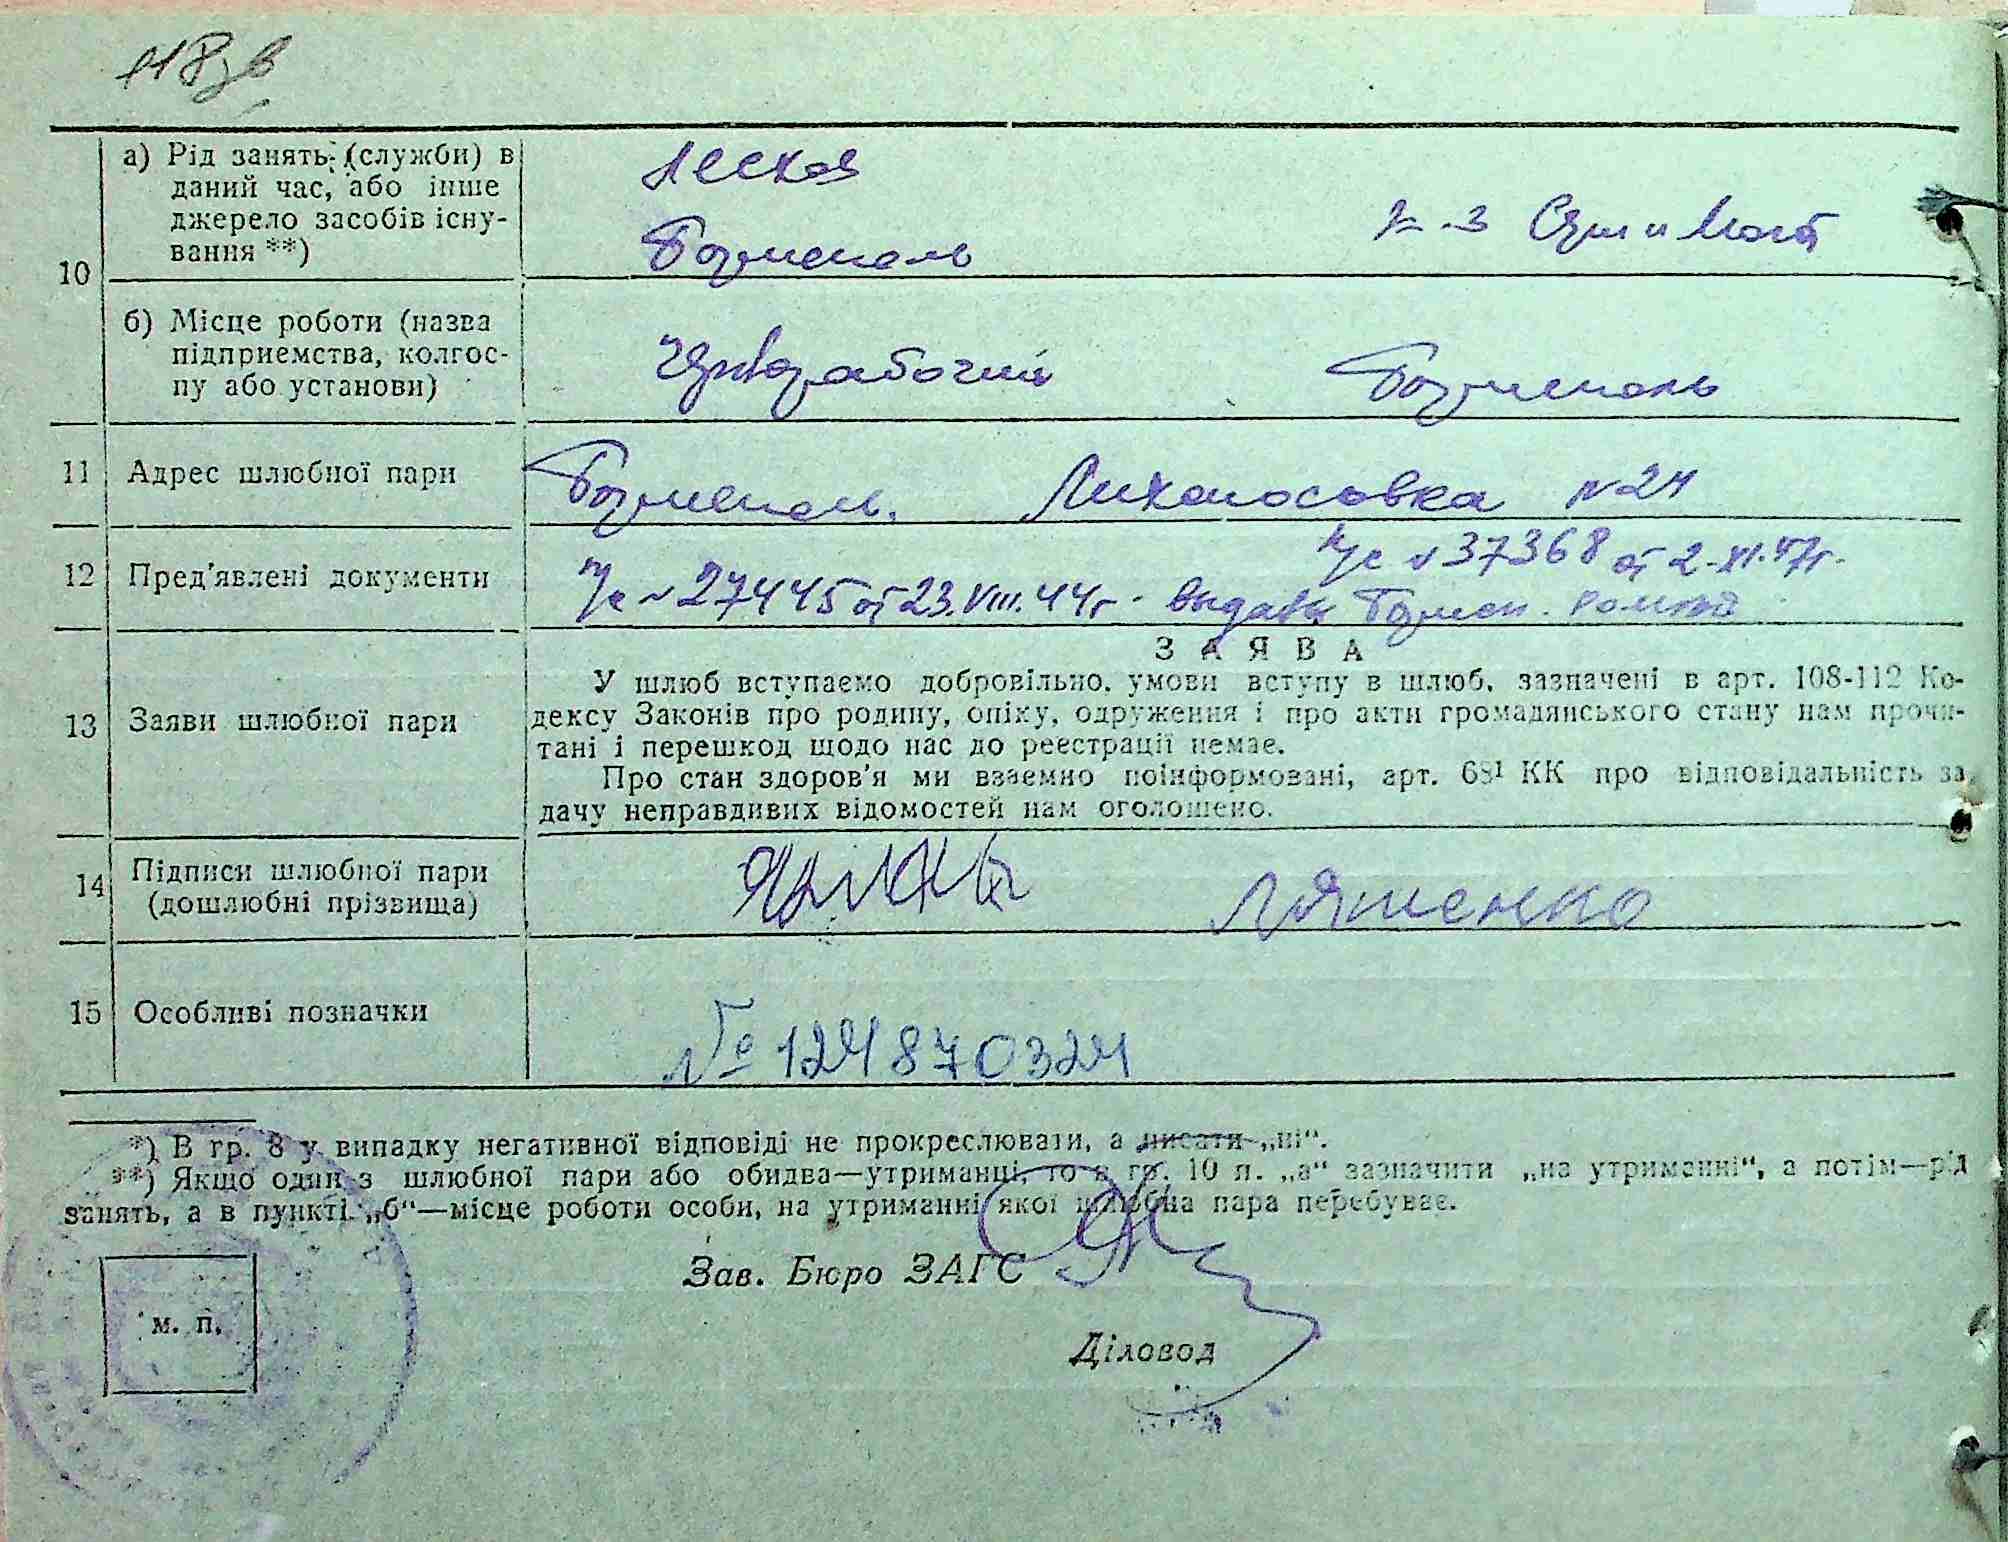 118 зв
10
а) Рід занять (служби) в
даний час, або інше
джерело засобів існу-
вання **)
Лесхоз
Гоменоль
К-З Серп и Молот
б) Місце роботи (назва
підприємства, колгос-
пу або установи)
Чернорабочий
11 Адрес шлюбної пари
Лихолосовка N 24
12 Пред'явлені документи
п/с N 37368 от 2-XI.47г.
п/с N 27445 от 23.VIII.44г. выдан
13 Заяви шлюбної пари
ЗАЯВА
У шлюб вступаємо добровільно, умови вступу в шлюб, зазначені в арт. 108-112 Ко-
дексу Законів про родину, опіку, одруження і про акти громадянського стану нам прочи-
тані і перешкод щодо нас до реєстрації немає.
Про стан здоров'я ми взаємно поінформовані, арт. 68¹ КК про відповідальність за
дачу неправдивих відомостей нам оголошено.
14 Підписи шлюбної пари
(дошлюбні прізвища)
Ляшенко
15 Особливі позначки
№ 124870324
*) В гр. 8 у випадку негативної відповіді не прокреслювати, а писати „ні“.
**) Якщо один з шлюбної пари або обидва—утриманці, то в гр. 10 п. „а“ зазначити „на утриманні“, а потім—рід
занять, а в пункті „б“—місце роботи особи, на утриманні якої шлюбна пара перебуває.
Зав. Бюро ЗАГС
м. п.
Діловод